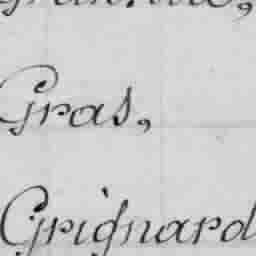 Gras,
Grignard